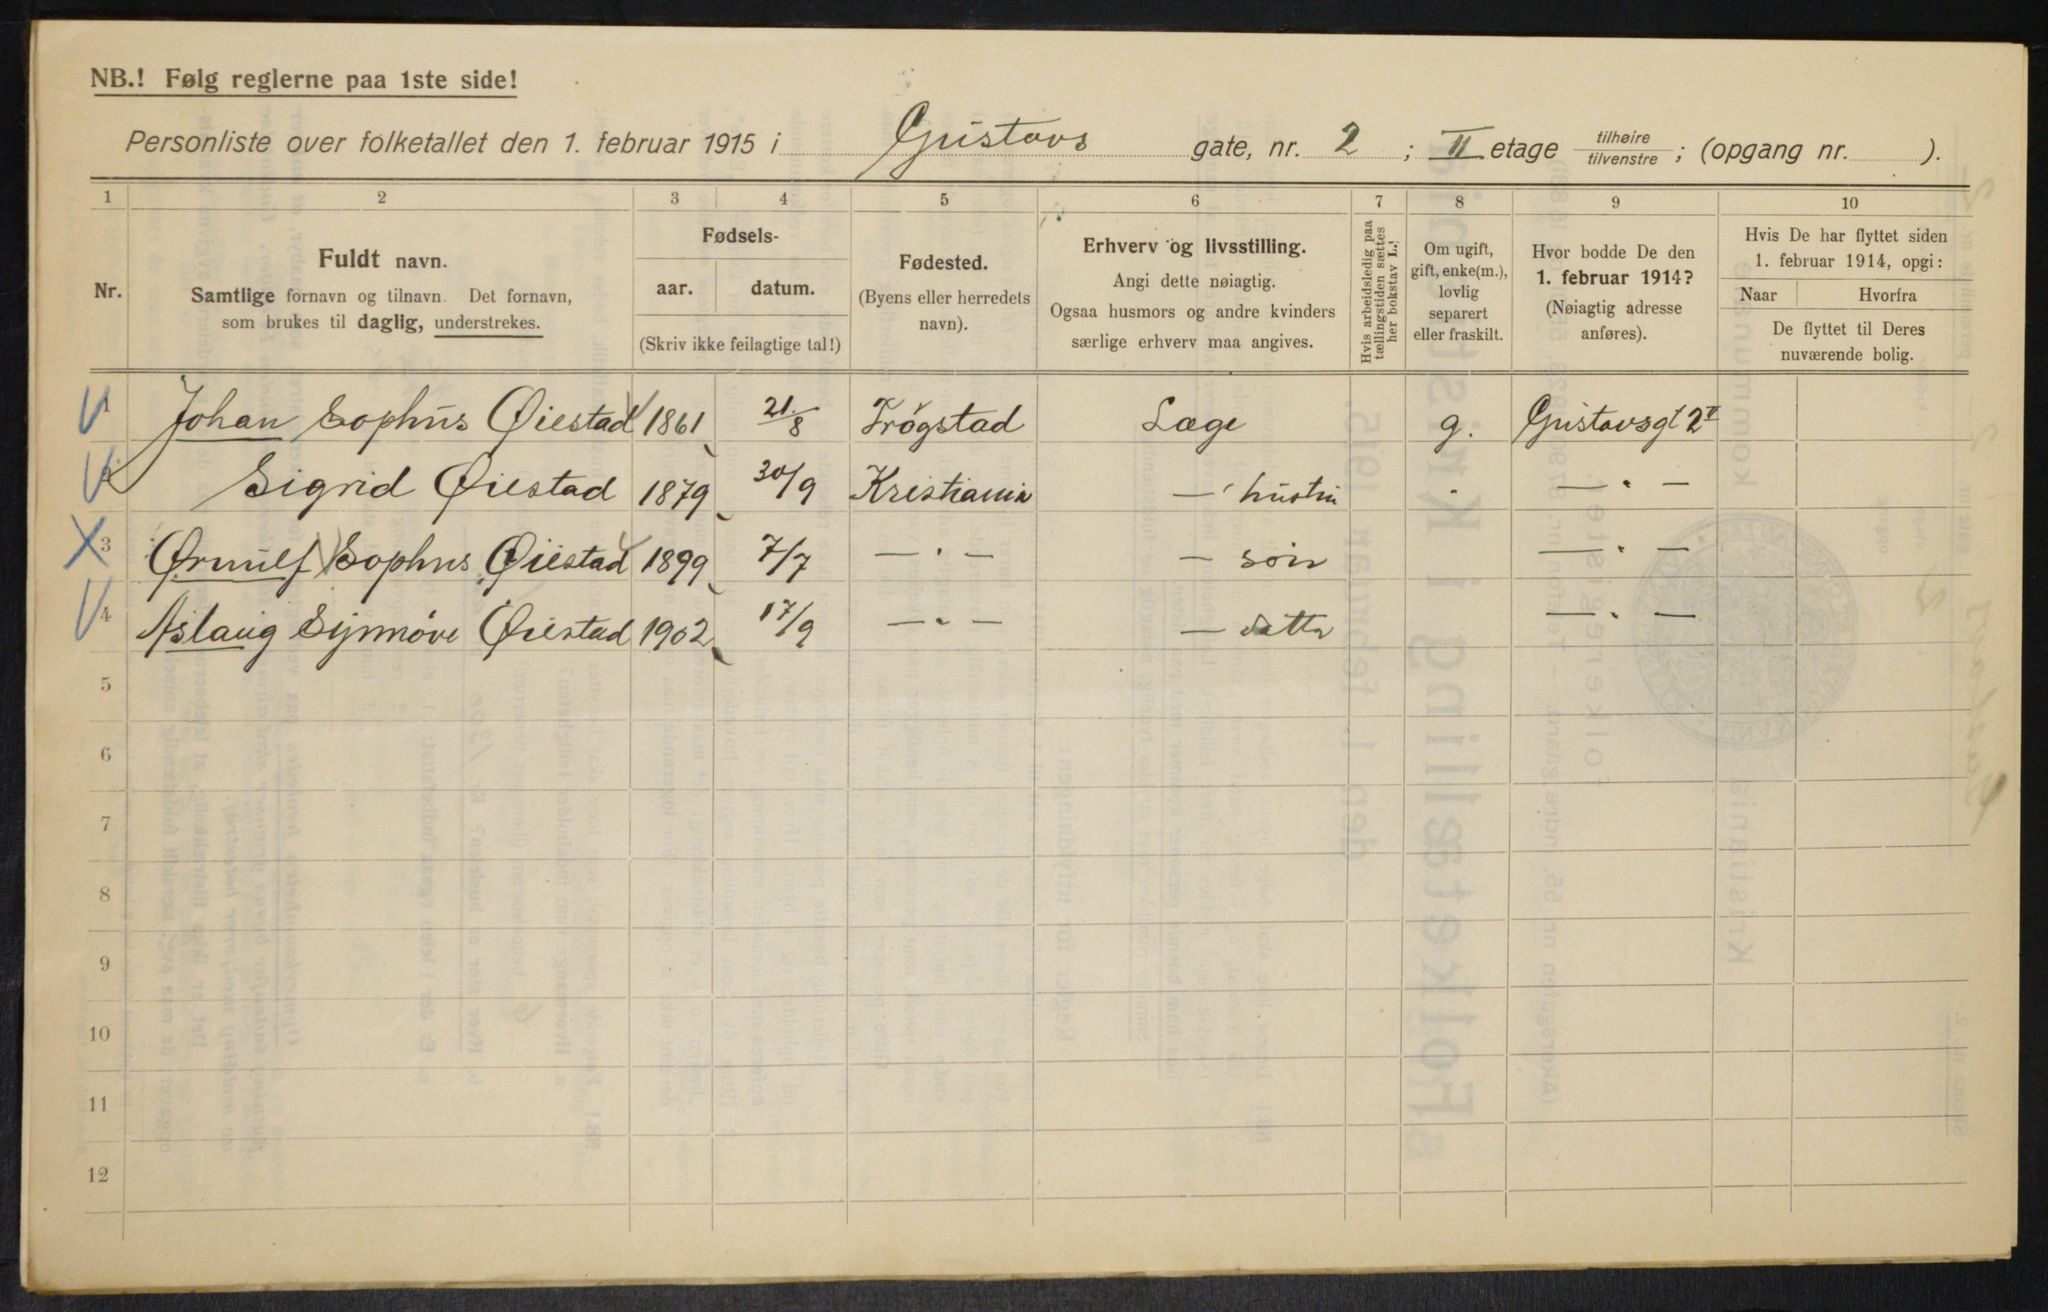 NB.! Følg reglerne paa 1ste side!
Personliste over folketallet den 1. februar 1915 i Gustavs gate, nr. 2 ; II etage tilhøire / tilvenstre ; (opgang nr. ).
1 2 3 4 5 6 7 8 9 10
Nr.
Fuldt navn.
Samtlige fornavn og tilnavn. Det fornavn,
som brukes til daglig, understrekes.
Fødsels-
aar. datum.
(Skriv ikke feilagtige tal!)
Fødested.
(Byens eller herredets
navn).
Erhverv og livsstilling.
Angi dette nøiagtig.
Ogsaa husmors og andre kvinders
særlige erhverv maa angives.
Hvis arbeidsledig paa
tællingstiden sættes
her bokstav L.!
Om ugift,
gift, enke(m.),
lovlig
separert
eller fraskilt.
Hvor bodde De den
1. februar 1914?
(Nøiagtig adresse
anføres).
Hvis De har flyttet siden
1. februar 1914, opgi:
Naar Hvorfra
De flyttet til Deres
nuværende bolig.
1 Johan Sophus Øiestad 1861 21/8 Trøgstad Læge g. Gustavsgt 2 II
2 Sigrid Øiestad 1879 30/9 Kristiania — hustru " — " —
3 Ørnulf Sophus Øiestad 1899 7/7 — " — — søn — " —
4 Aslaug Synnøve Øiestad 1902 17/9 — " — — datter — " —
5
6
7
8
9
10
11
12